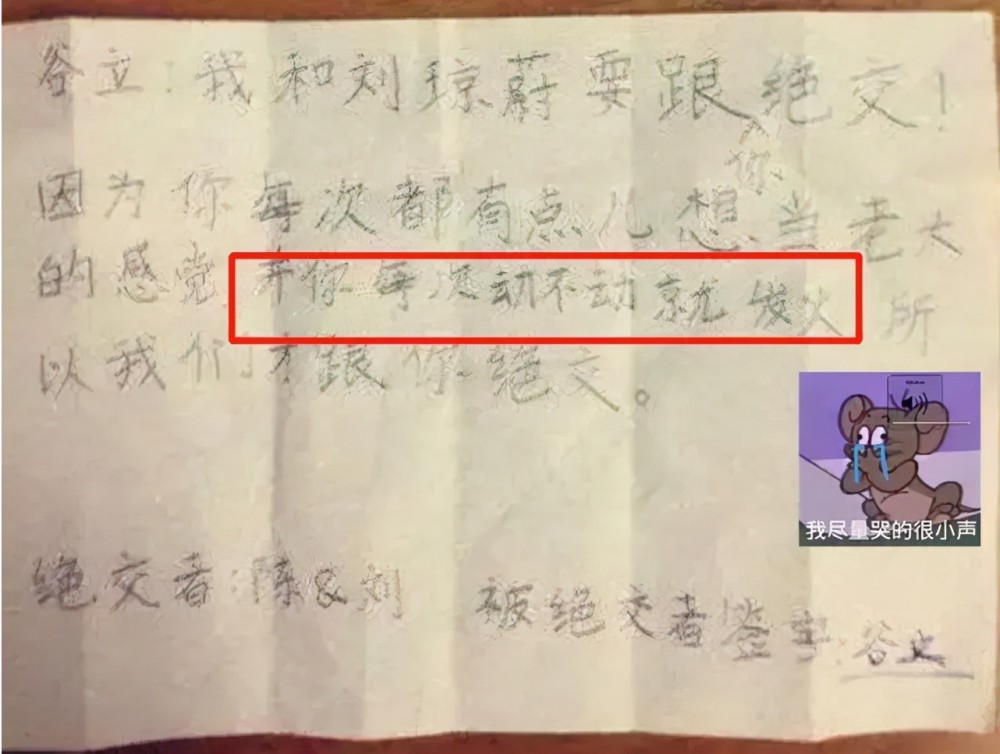 谷立：我和刘琼蔚要跟绝交！
你
因为你每次都有点儿想当老大
的感觉，并你每次动不动就发火 所
以我们才跟你绝交。
我尽量哭的很小声
绝交者：陈&刘 被绝交者签字：谷立